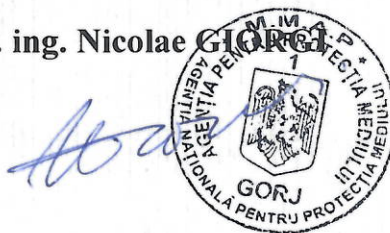 . ing. Nicolae GIORGI
M.M.A.P.
AGENȚIA NAȚIONALĂ PENTRU PROTECȚIA MEDIULUI
AGENȚIA PENTRU PROTECȚIA MEDIULUI
1
GORJ